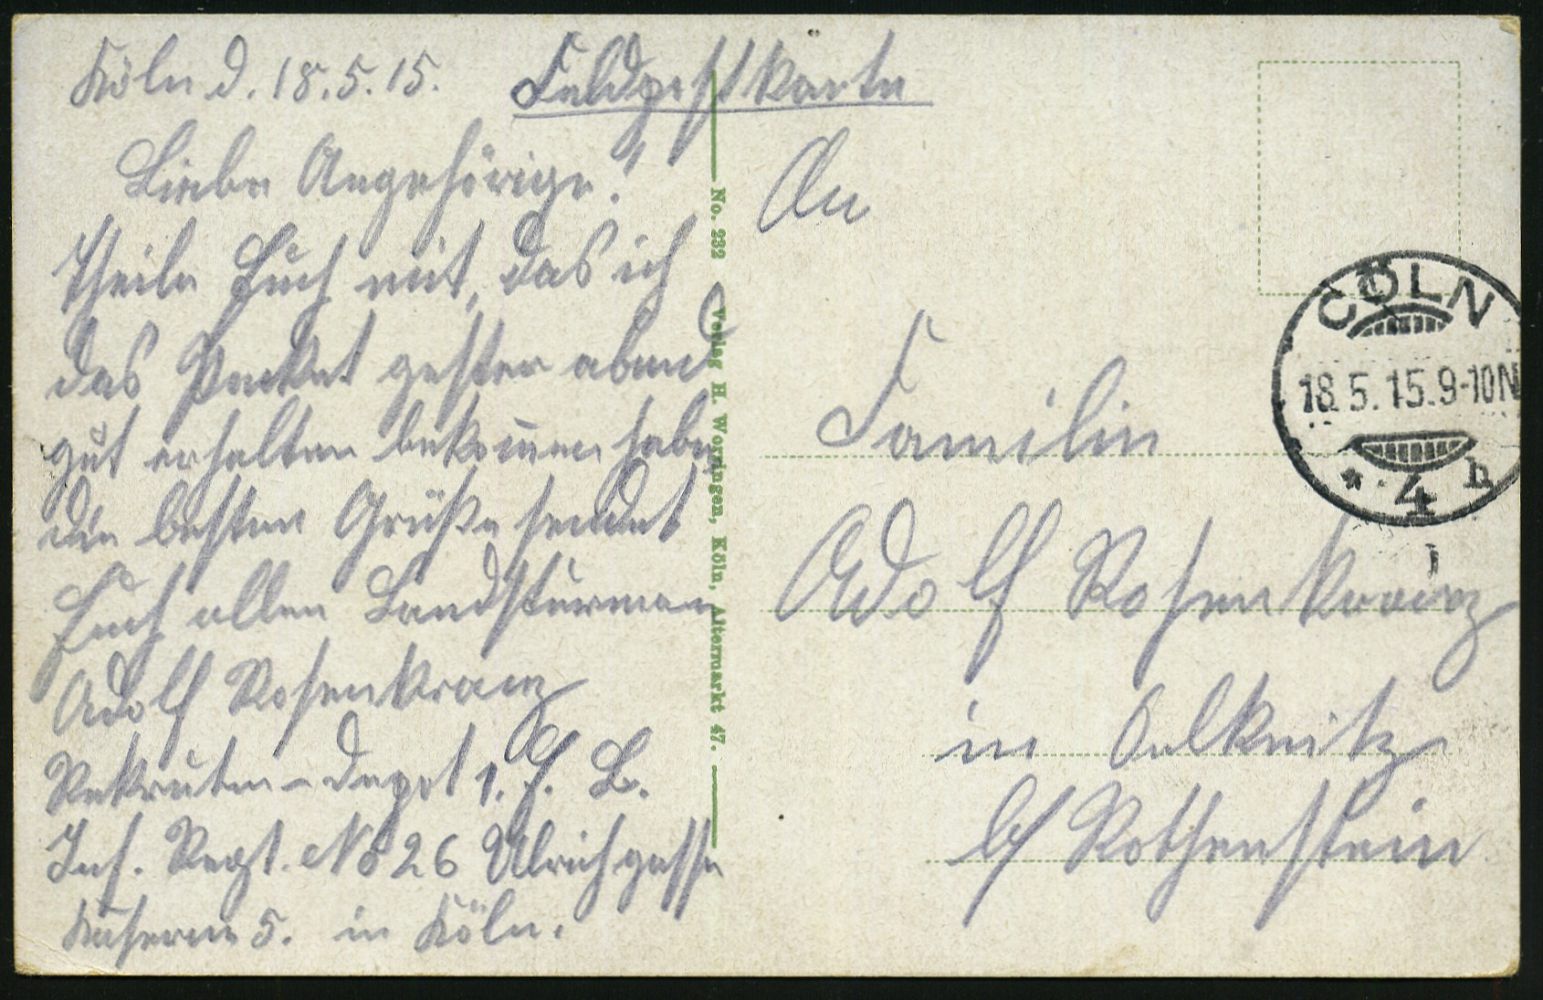 Köln d. 18.5.15.
Feldpostkarte
Liebe Angehörige!
Theile Euch mit, das ich
das Packet gester abend
gut erhalten bekommen habe
die besten Grüße sendet
Euch allen Landsturmman
Adolf Rosenkranz
Rekruten-Depot 1. E. B.
Inf. Regt. No 26 Ulrichgasse
Kaserne 5. in Köln.
No. 232 Verlag H. Worringen, Köln, Altermarkt 47.
An
Familie
Adolf Rosenkranz
in Oelknitz
b/ Rothenstein
CÖLN
18.5.15.9-10N
* 4 h